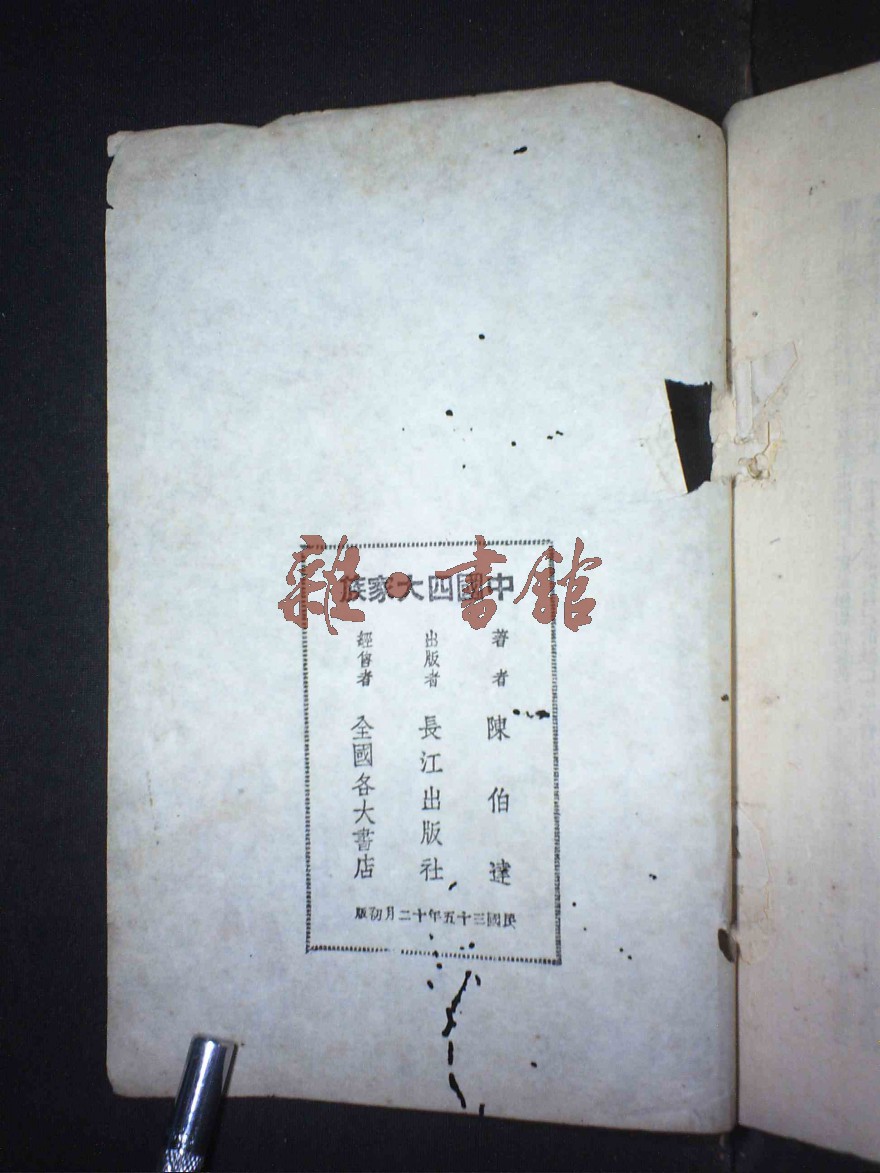 中國四大家族
著者 陳伯達
出版者 長江出版社
經售者 全國各大書店
民國三十五年十二月初版
雜·書館